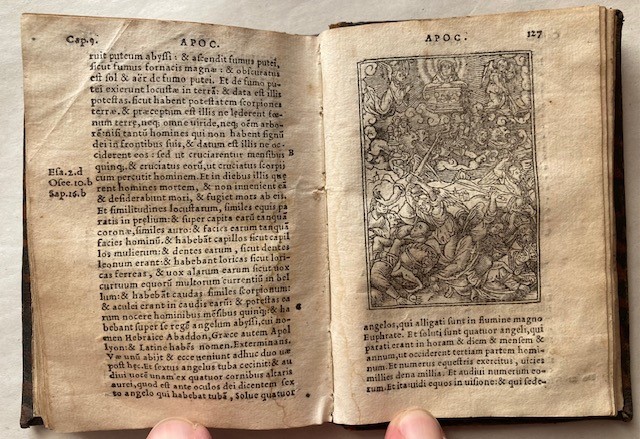 Cap.9. APOC.
ruit puteum abyssi: & ascendit fumus putei,
sicut fumus fornacis magnæ: & obscuratus
est sol & aër de fumo putei. Et de fumo pu-
tei exierunt locustæ in terrã: & data est illis
potestas, sicut habent potestatem scorpiones
terræ. & præceptum est illis ne lęderent fœ-
num terrę, neq; omne uiride, neq; oẽm arbo-
rẽ: nisi tantũ homines qui non habent signũ
dei in frontibus suis, & datum est illis ne oc-
ciderent eos: sed ut cruciarentur mensibus
B
quinq;. & cruciatus eorũ, ut cruciatus scorpij
cum percutit hominem. Et in diebus illis quę
Esa.2.d
rent homines mortem, & non inuenient eã
Osee.10.b
& desiderabunt mori, & fugiet mors ab eis.
Sap.16.b
Et similitudines locustarum, similes equis pa
ratis in prelium: & super capita earũ tanquã
coronæ, similes auro: & facies earum tanquã
facies hominũ. & habebãt capillos sicut capil
los mulierum: & dentes earum, sicut dentes
leonum erant: & habebant loricas sicut lori-
cas ferreas, & uox alarum earum sicut uox
curruum equorũ multorum currentiũ in bel
lum: & habebãt caudas similes scorpionum:
& aculei erant in caudis earũ: & potestas ea
rum nocere hominibus mẽsibus quinq;: & ha
bebant super se regẽ angelum abyssi, cui no-
men Hebraice Abaddon, Græce autem Apol
lyon: & Latine habẽs nomen. Exterminans.
Væ unũ abijt & ecce ueniunt adhuc duo uæ
post hęc. Et sextus angelus tuba cecinit: & au
diui uocẽ unam ex quatuor cornibus altaris
aurei, quod est ante oculos dei dicentem sex
to angelo qui habebat tubã, Solue quatuor
APOC. 127
angelos, qui alligati sunt in flumine magno
Euphrate. Et soluti sunt quatuor angeli, qui
parati erant in horam & diem & mensem &
annum, ut occiderent tertiam partem homi-
num. Et numerus equestris exercitus, uicies
millies dena millia. Et audiui numerum eo-
rum. Et ita uidi equos in uisione: & qui sede-